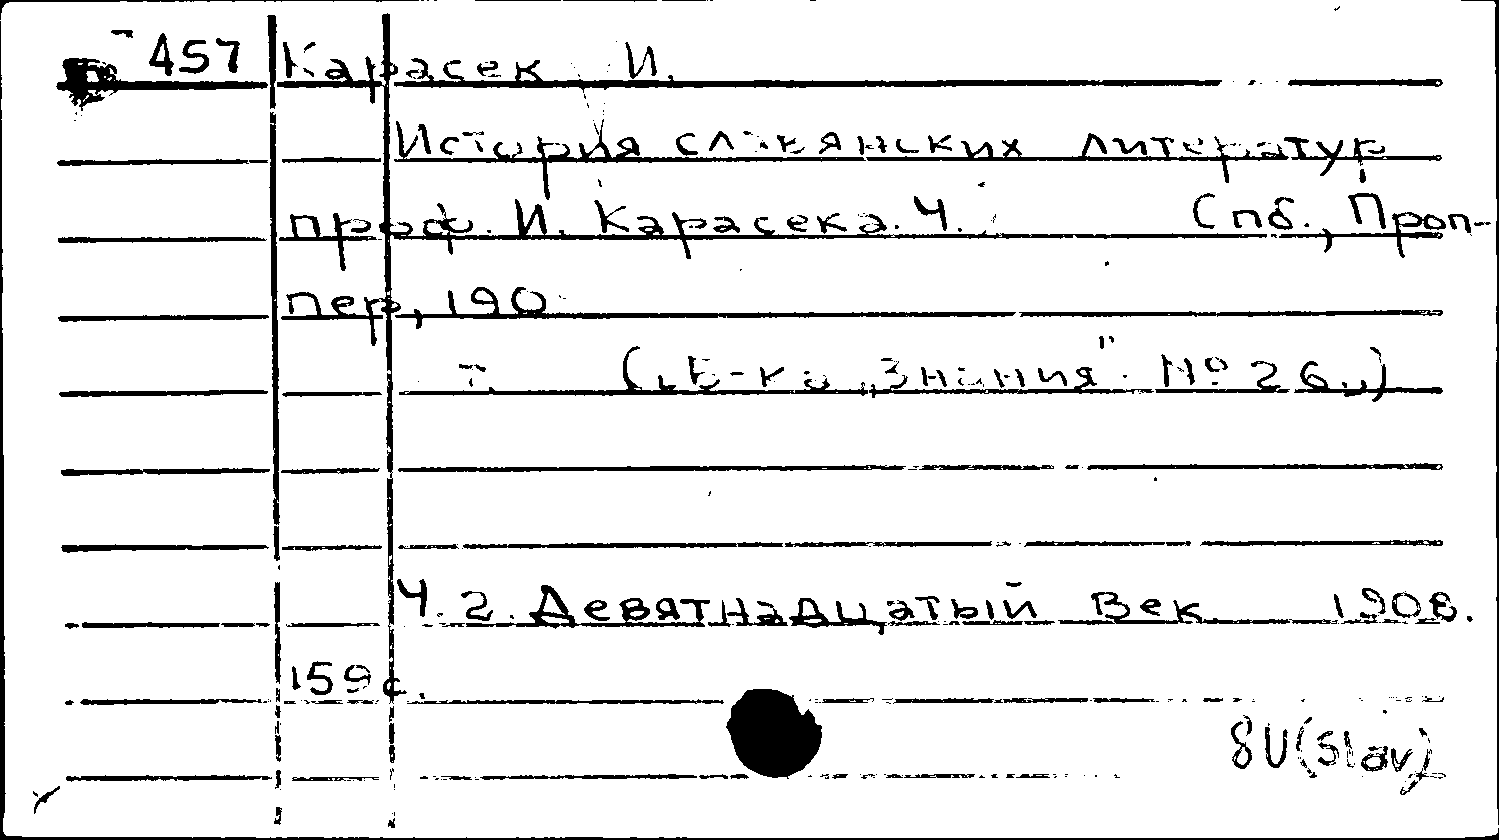 457 Карасек И.
История славянских литератур
проф. И. Карасека. Ч. Спб., Проп-
пер, 190
т. („Б-ка „Знания". № 26„)
Ч. 2. Девятнадцатый век. 1908.
159 с.
8U(Slav)